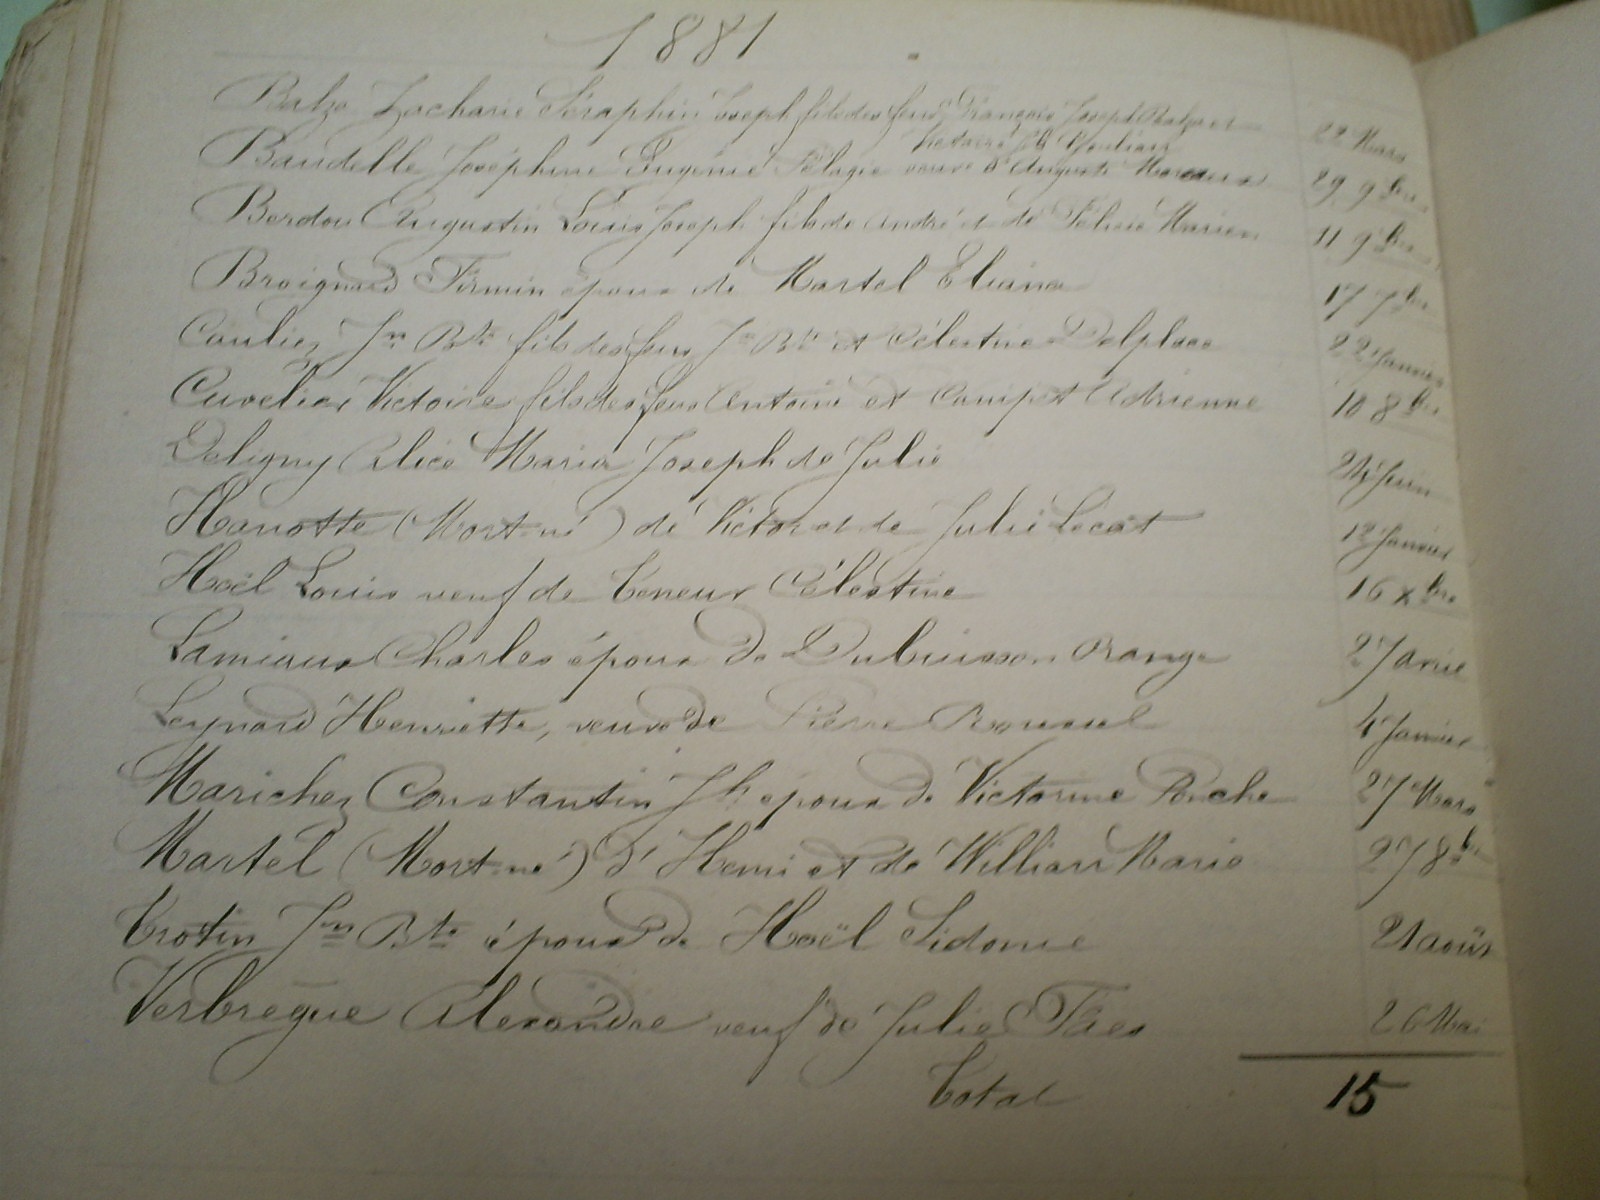 1881
Balza Zacharie Séraphin Joseph fils des feus François Joseph Balza et 22 Mars
Victoire
Baudelle Joséphine Eugénie Pélagie veuve d'Auguste 29 9bre
Berdou Augustin Louis Joseph fils de André et de Félicie 11 9bre
Broignard Firmin époux de Martel Eliana 17 7bre
Cauliez Jn Bte fils des feus Jn Bte et Célestine Delplace 22 Janvier
Cuvelier Victoire fils des feus Antoine et Campet Adrienne 10 8bre
Deligny Alice Maria Joseph de Julie 24 Juin
Hanotte (Mort-né) de Victor et de Julie Lecat 12 Janvier
Hoël Louis veuf de Teneur Célestine 16 Xbre
Lamiaux Charles époux de Dubuisson Orange 27 avril
Leynard Henriette, veuve de Pierre Roussel 4 Janvier
Marichez Constantin Jh époux de Victorine Ponche 27 Mars
Martel (Mort-né) d'Henri et de Williart Marie 27 8bre
Trotin Jn Bte époux de Hoël Sidonie 21 août
Verbregue Alexandre veuf de Julie Faes 26 Mai
Total 15